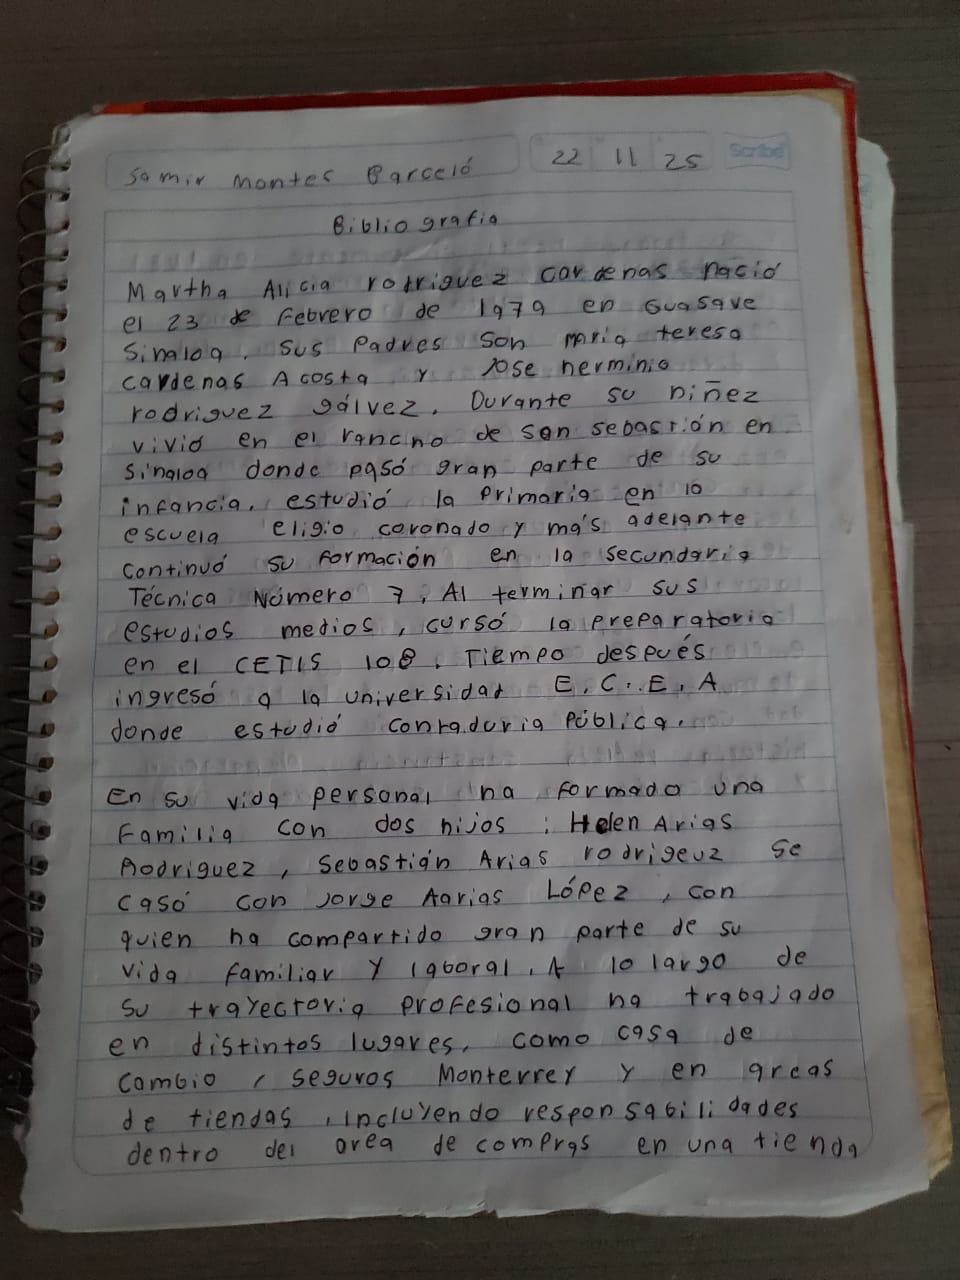 Samir Montes Barceló 22 11 25 Scribe
Bibliografia
Martha Alicia rodriguez cardenas nació
el 23 de Febrero de 1979 en Guasave
Sinaloa, Sus Padres Son maria teresa
cardenas Acosta y Jose herminio
rodriguez gálvez. Durante su niñez
vivió en el rancho de san sebastión en
Sinaloa donde pasó gran parte de su
infancia. estudió la Primaria en la
escuela eligio coronado y más adelante
continuó su formación en la secundaria
Técnica Número 7, Al terminar sus
estudios medios, cursó la preparatoria
en el CETIS 108. Tiempo después
ingresó a la universidad E.C.E.A
donde estudió Conraduria Pública.
En su vida personal ha formado una
Familia con dos hijos : Helen Arias
Rodriguez, Sebastián Arias rodrigeuz se
casó con Jorge Aarias López, con
quien ha compartido gran parte de su
vida familiar y laboral. A lo largo de
su trayectoria profesional ha trabajado
en distintos lugares, como casa de
cambio, seguros Monterrey y en areas
de tiendas, incluyendo responsabilidades
dentro del area de compras en una tienda